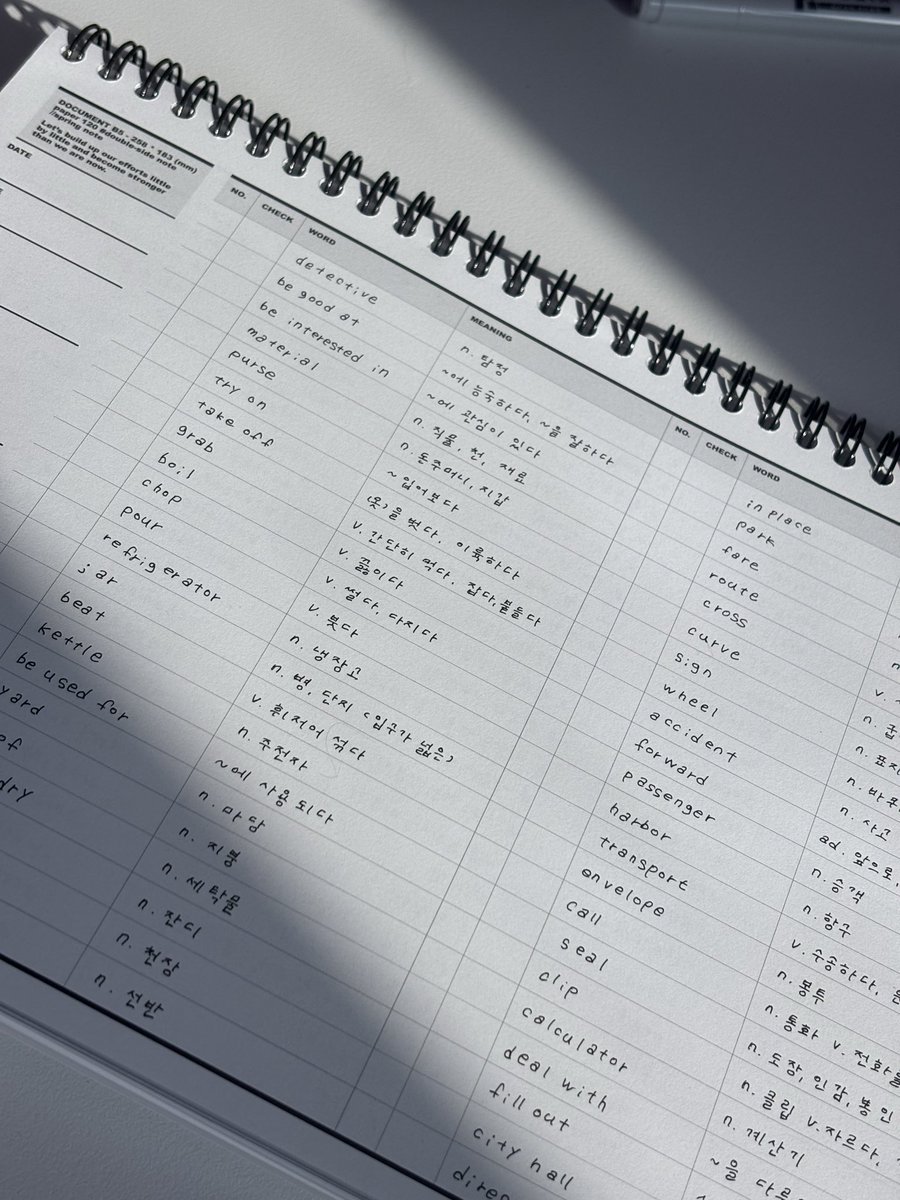 DOCUMENT B5 - 258 * 183 (mm)
paper 120 #double-side note
//spring note
Let's build up our efforts little
by little and become stronger
than we are now.
DATE
NO. CHECK WORD MEANING
detective n. 탐정
be good at ~에 능숙하다, ~을 잘하다
be interested in ~에 관심이 있다
material n. 직물, 천, 재료
purse n. 돈주머니, 지갑
try on ~ 입어보다
take off (옷)을 벗다. 이륙하다
grab v. 간단히 먹다. 잡다, 붙들다
boil v. 끓이다
chop v. 썰다, 다지다
pour v. 붓다
refrigerator n. 냉장고
jar n. 병, 단지 (입구가 넓은)
beat v. 휘저어 섞다
kettle n. 주전자
be used for ~에 사용되다
yard n. 마당
of n. 지붕
dry n. 세탁물
n. 잔디
n. 천장
n. 선반
NO. CHECK WORD
in place
park
fare
route
cross v.
curve n. 굽
sign n. 표지
wheel n. 바퀴
accident n. 사고
forward ad. 앞으로,
passenger n. 승객
harbor n. 항구
transport v. 수송하다,
envelope n. 봉투
call n. 통화 v. 전화를
seal n. 도장, 인감, 봉인
clip n. 클립 v. 자르다,
calculator n. 계산기
deal with ~을 다루
fill out
city hall
direc